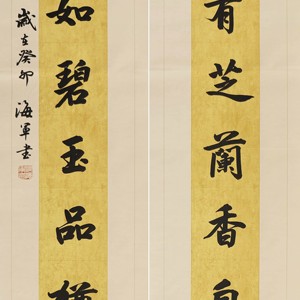 有芝蘭香
如碧玉品
歲在癸卯 海軍書